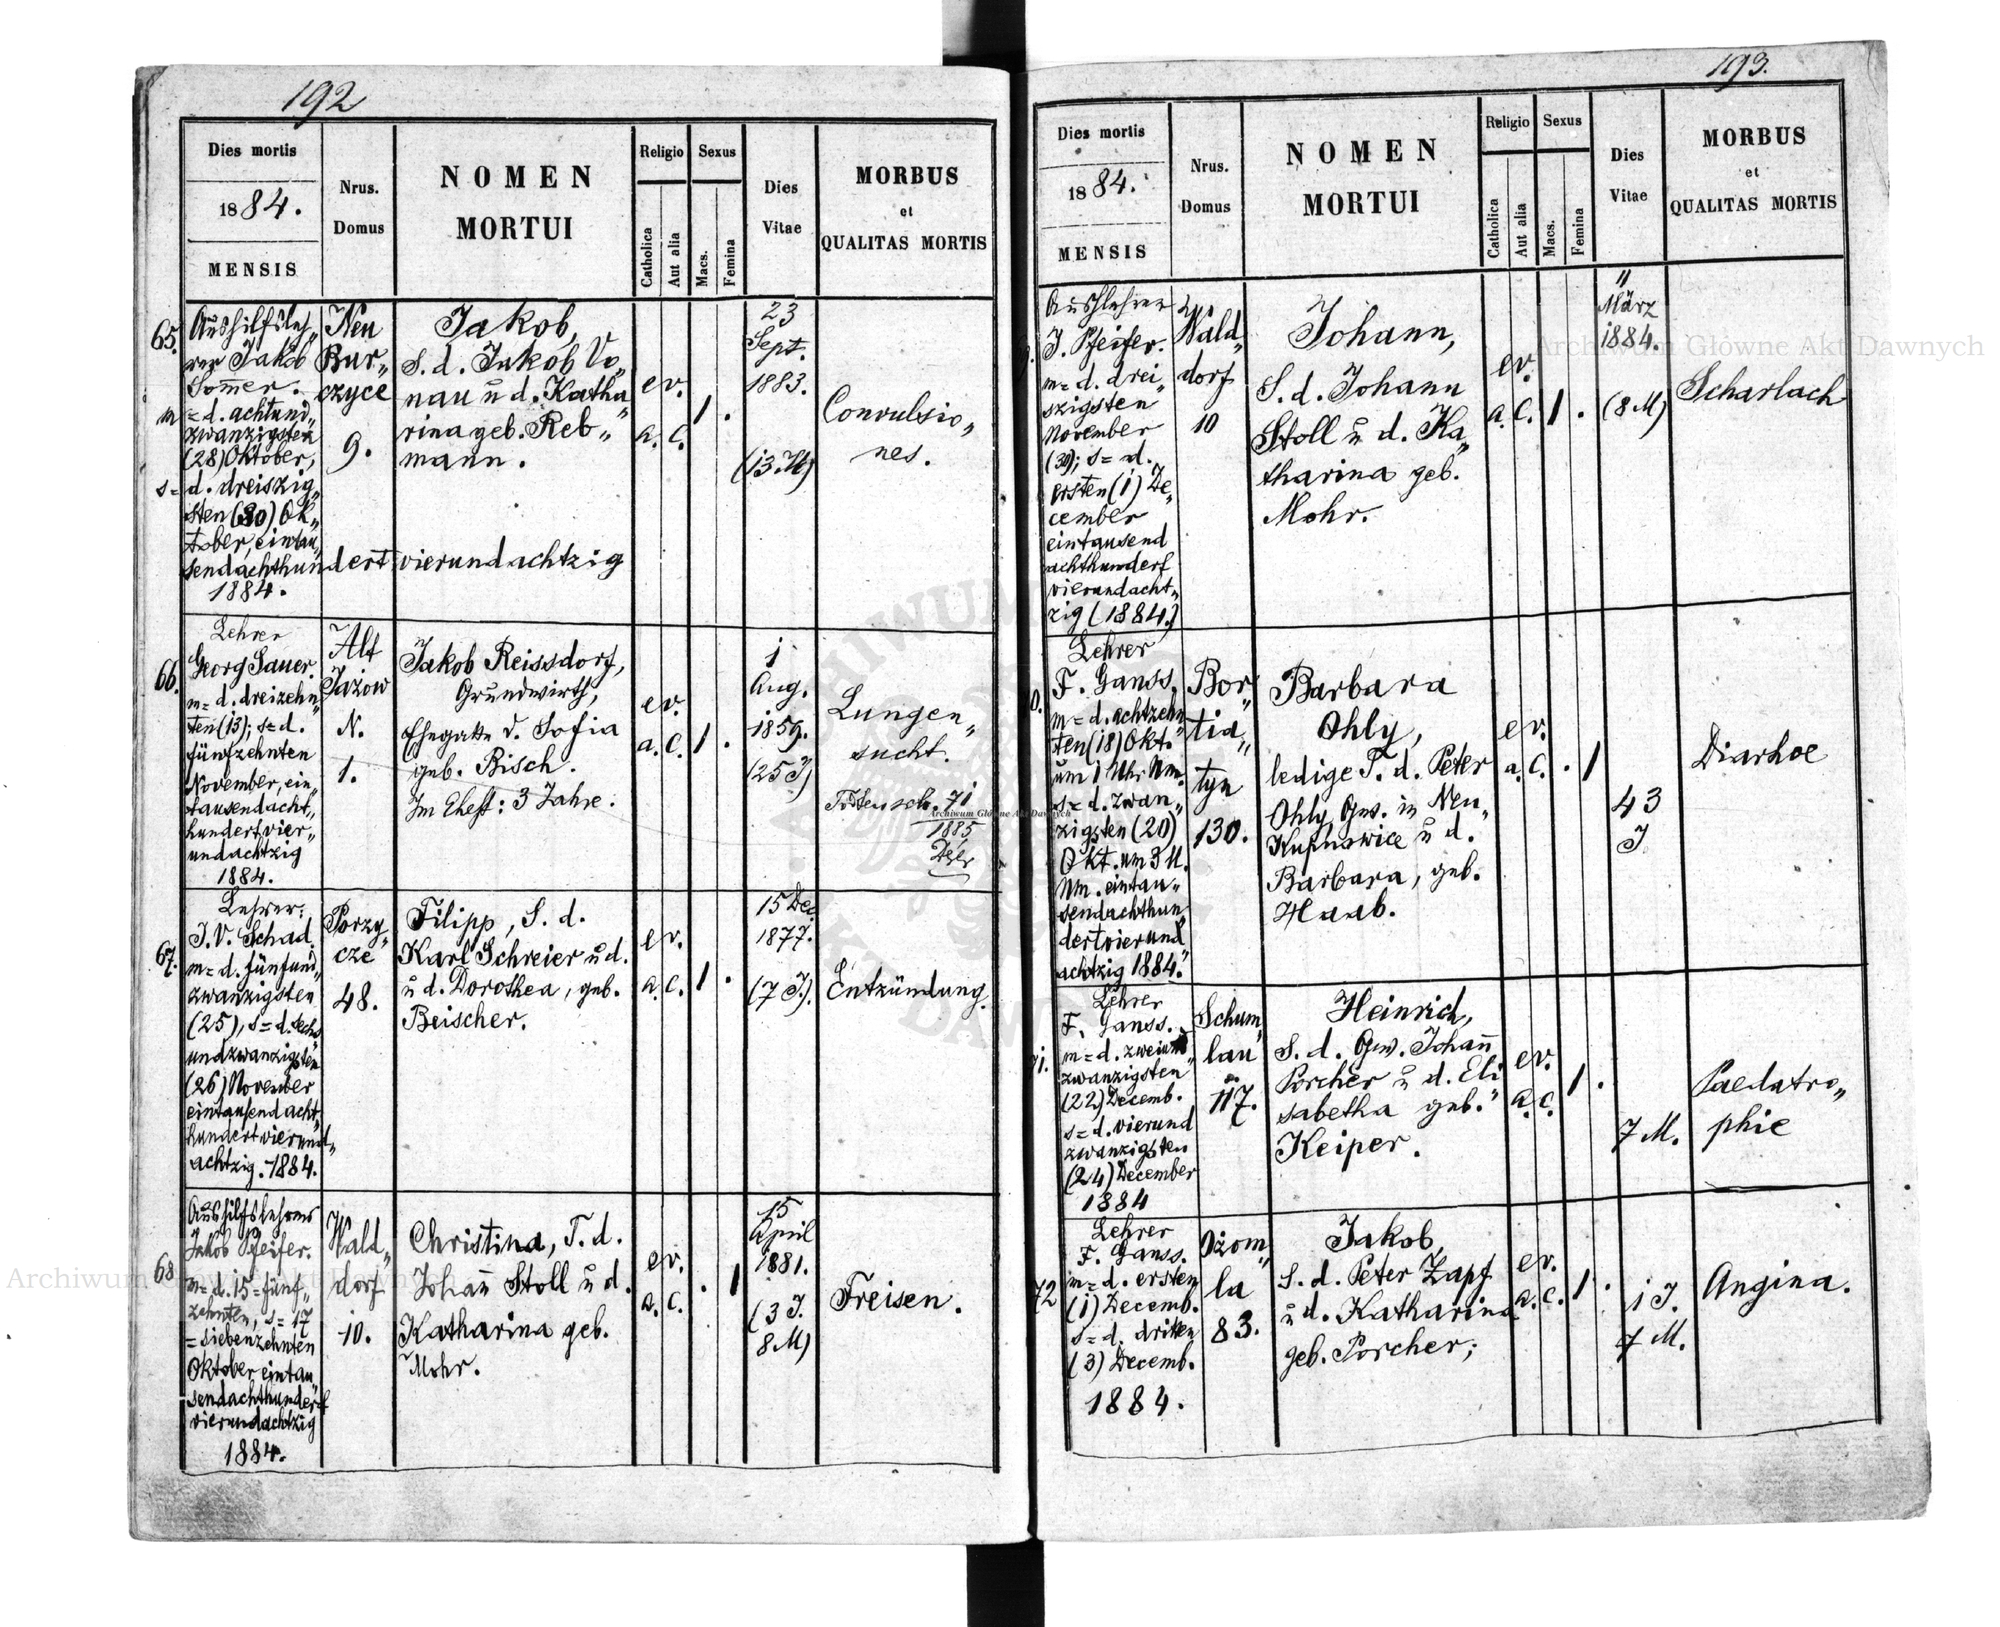 192
Dies mortis
1884.
MENSIS
Nrus.
Domus
NOMEN
MORTUI
Religio
Catholica
Aut alia
Sexus
Macs.
Femina
Dies
Vitae
MORBUS
et
QUALITAS MORTIS
65.
Aushilfsleh„
rer Jakob
Sommer.
m = d. achtund„
zwanzigsten
(28) Oktober,
s = d. dreiszig„
sten (30) Ok„
tober, eintau„
sendachthundert vierundachtzig
1884.
Neu
Bur„
czyce
9.
Jakob,
S. d. Jakob Vo„
nau u d. Katha„
rina geb. Reb„
mann.
ev.
a. C.
1 .
23
Sept.
1883.
(13 M)
Convulsio„
nes.
66.
Lehrer
Georg Sauer.
m = d. dreizehn„
ten (13); s = d.
fünfzehnten
November, ein„
tausendacht„
hundert vier„
undachtzig
1884.
Alt
Jazow
N.
1.
Jakob Reissdorf,
Grundwirth,
Ehegatte d. Sofia
geb. Bisch.
Im Ehest: 3 Jahre.
ev.
a. C.
1 .
1
Aug.
1859.
(25 J)
Lungen„
sucht.
Todtensch. 71
1885
67.
Lehrer:
J. V. Schad.
m = d. fünfund„
zwanzigsten
(25), s = d. sechs
undzwanzigsten
(26) November
eintausend acht„
hundert vierund„
achtzig. 1884.
Porzy„
cze
48.
Filipp, S. d.
Karl Schreier u d.
u d. Dorothea, geb.
Beischer.
ev.
a. C.
1 .
15 Dec.
1877.
(7 J.)
Entzündung.
68
Aushilfslehrers
Jakob Pfeifer.
m = d. 15 = fünf„
zehnten, s = 17
= siebenzehnten
Oktober eintau„
sendachthundert
vierundachtzig
1884.
Wald„
dorf
10.
Christina, T. d.
Johann Stoll u d.
Katharina geb.
Mohr.
ev.
a. C.
. 1
15
April
1881.
(3 J.
8 M)
Freisen.
193.
Dies mortis
1884.
MENSIS
Nrus.
Domus
NOMEN
MORTUI
Religio
Catholica
Aut alia
Sexus
Macs.
Femina
Dies
Vitae
MORBUS
et
QUALITAS MORTIS
Aushlehrer
J. Pfeifer.
m = d. drei„
szigsten
November
(30); s = d.
ersten (1) De„
cember
eintausend
achthundert
vierundacht„
zig (1884.)
Wald„
dorf
10
Johann,
S. d. Johann
Stoll u d. Ka„
tharina geb.
Mohr.
ev.
a. C.
1 .
11
März
1884.
(8 M)
Scharlach
0.
Lehrer
F. Ganss.
m = d. achtzehn„
ten (18) Okt.
um 1 Uhr Nm.
s = d. zwan„
zigsten (20)
Okt. um 3 U.
Nm. eintau„
sendachthun„
dertvierund„
achtzig 1884.
Bor„
tia„
tyn
130.
Barbara
Ohly,
ledige T. d. Peter
Ohly, Gw. in Neu„
Kupnowice u d.
Barbara, geb.
Haab.
ev.
a. C.
. 1
43
J
Diarhoe
71.
Lehrer
F. Ganss.
m = d. zweiund„
zwanzigsten
(22) Decemb.
s = d. vierund
zwanzigsten
(24) December
1884
Schum„
lau
117.
Heinrich,
S. d. Gw. Johann
Porcher u d. Eli„
sabetha geb.
Keiper.
ev.
a. C.
1 .
7 M.
Paedatro„
phie
72
Lehrer
F. Ganss.
m = d. ersten
(1) Decemb.
s = d. dritten
(3) Decemb.
1884.
Ożom„
la
83.
Jakob
S. d. Peter Zapf
u d. Katharina
geb. Porcher;
ev.
a. C.
1 .
1 J.
7 M.
Angina.
Archiwum Główne Akt Dawnych
Archiwum Główne Akt Dawnych
Archiwum Główne Akt Dawnych